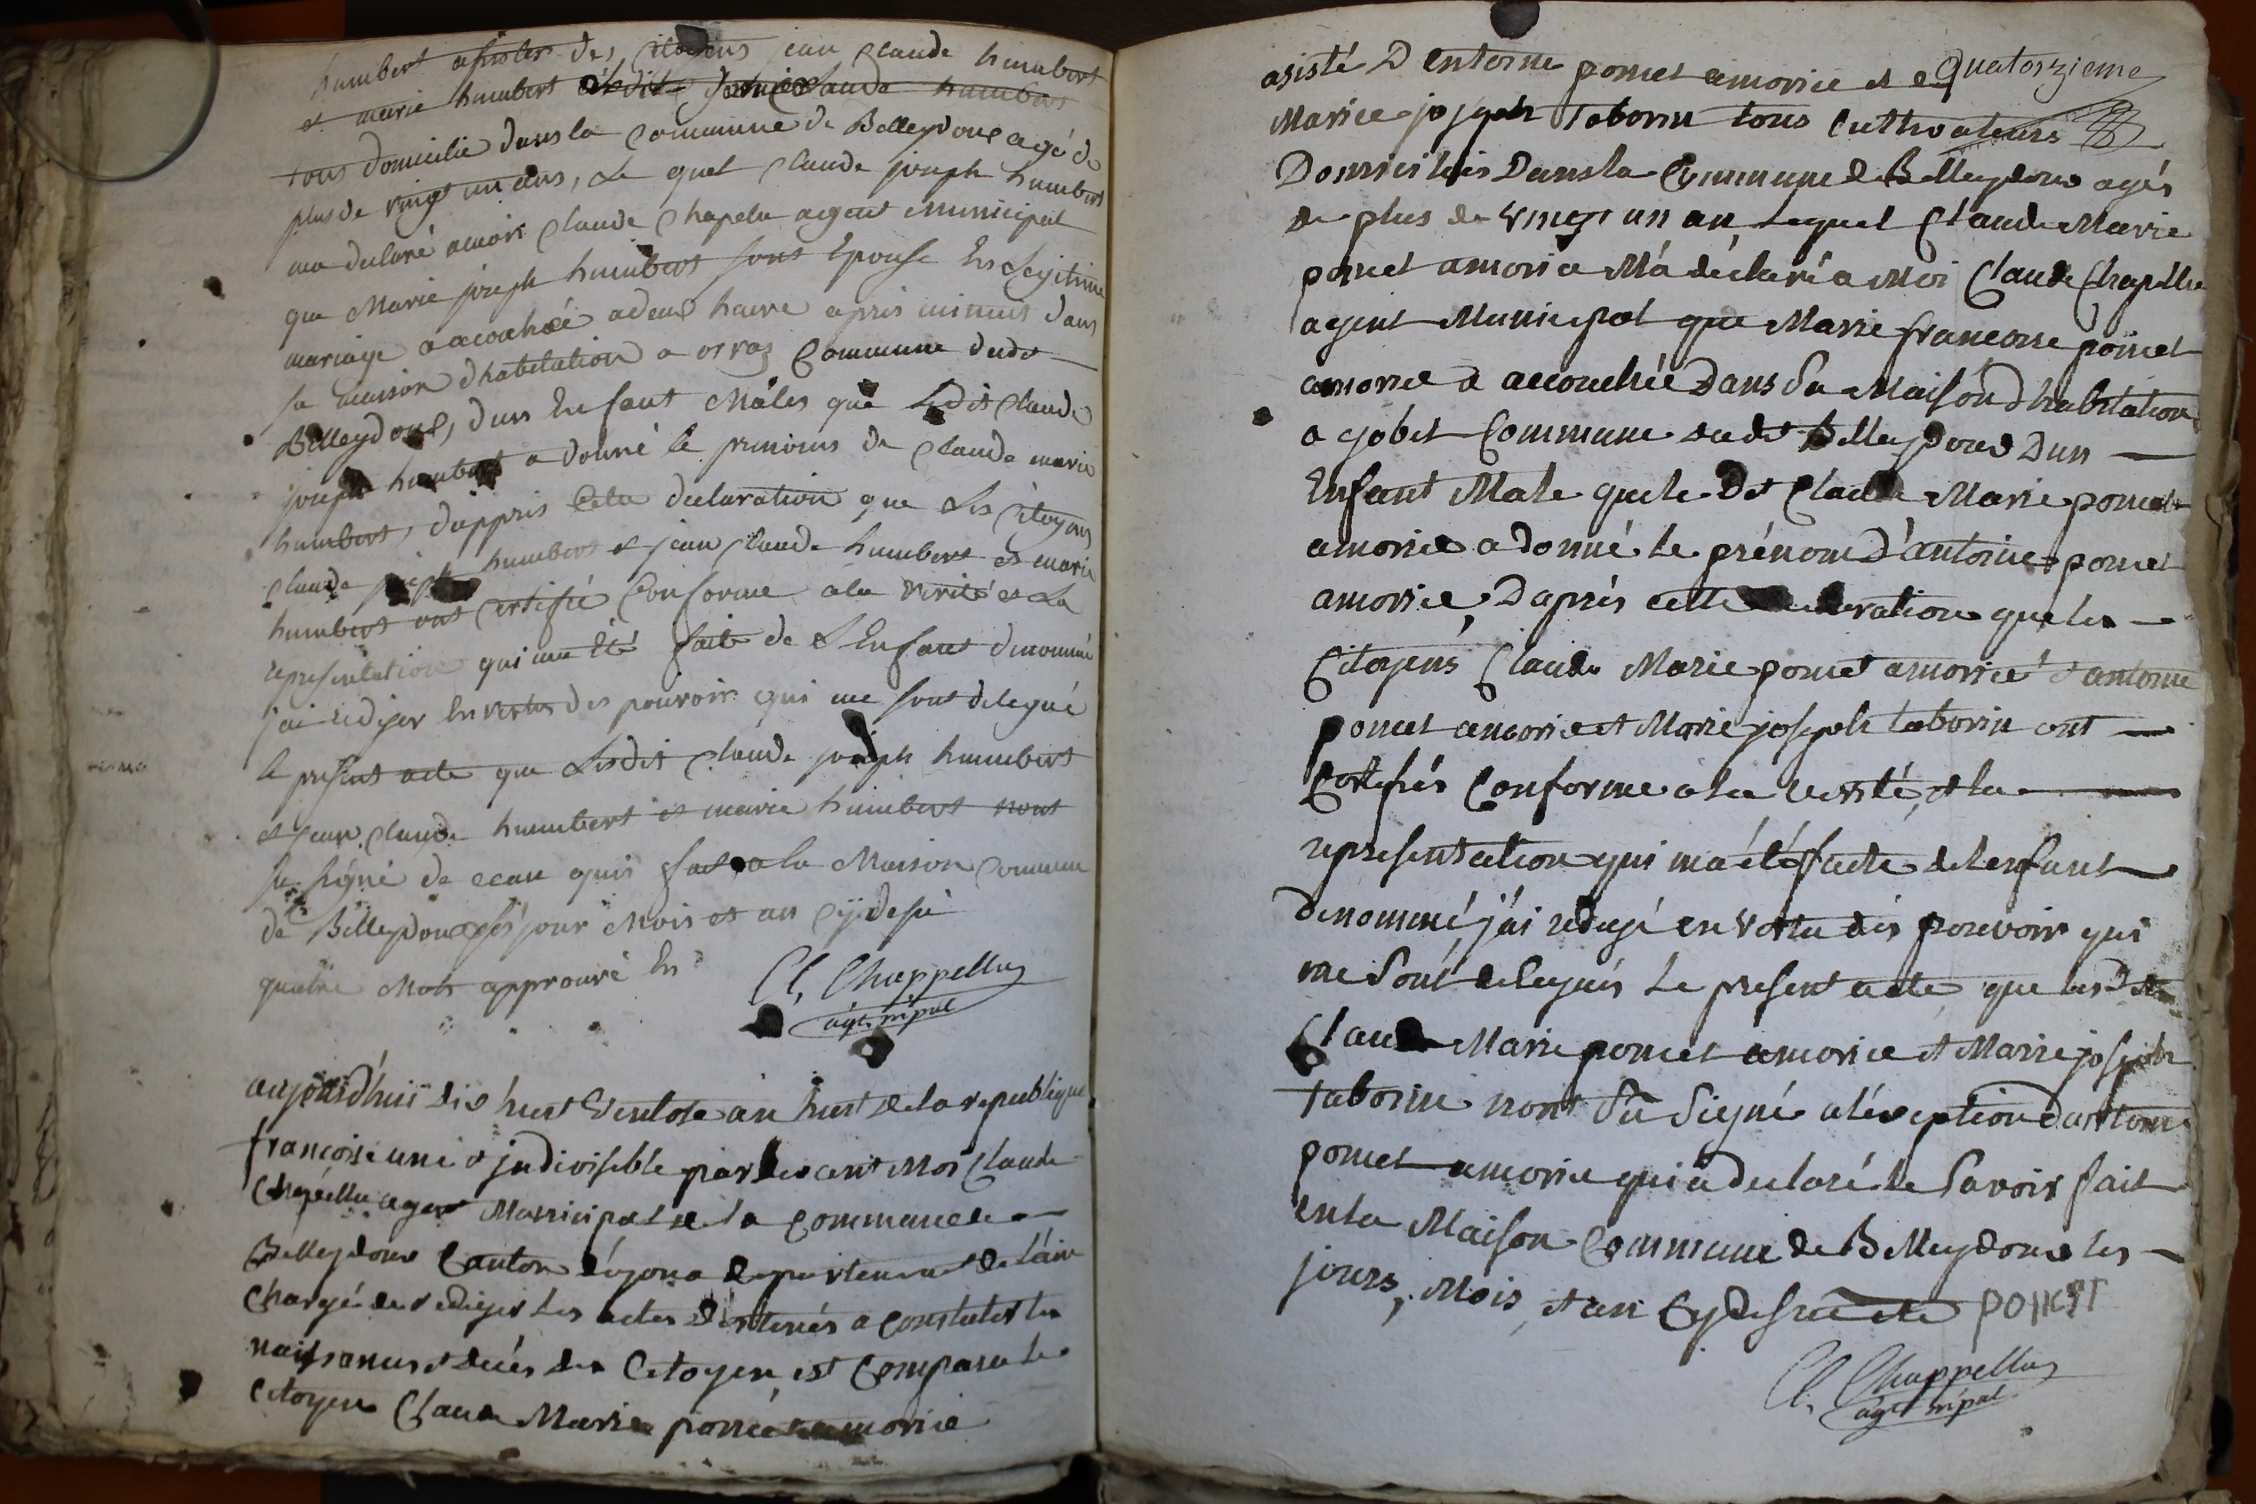 humbert assister des citoyens jean Claude humbert
et marie humbert humbert
tous domicilié dans la Commune de Belleydoux agé de
plus de vingt un ans, Le quel Claude joseph humbert
ma declaré amoir Claude Chapelu agent Municipal
que Marie joseph humbert sont Epouse En Legitime
mariage a acouchée adeux heure apris minuit dans
sa maison dhabitation a orvaz Commune dudt
Belleydoux, dun Enfant Mâles que Ledit Claude
joseph humbert a donné le prenoms de Claude marie
humbert, dappris Cette declaration que Les Citoyens
Claude joseph humbert et jean Claude humbert et marie
humbert ont Certifié Conforme ala verité et La
representation qui ma Eté faite de L Enfant denommé
jai rediger En vertus des pouvoir qui me sont delegué
le present acte que Lesdit Claude joseph humbert
et jean Claude humbert et marie humbert nont
su signé de ecau quis fait a la Maison Commune
de Belleydoux Les jour Mois et an Cy desu
quatre Mots approuvé En
Cl. Chappelluz
agt. mpal
aujourd'huii dix huit Ventose an huit de la republique
francoise une et jndivisible pardevant Moi Claude
Chapellu agent Municipal de la Commune de
Belleydoux Canton d'oyona departement de l'ain
Chargé de rediger les actes destinés a constater les
naissances et decés des Citoyen, est Comparu le
Citoyen Claude Marie poncet amorice
quatorzieme
asisté D entoine poncet amorice et de
Marie joseph taborin tous Cultivateurs
Domiciliés Dans la Commune de Belleydoux agés
de plus de vingt un an, Lequel Claude Marie
poncet amorice M'a déclaré a Moi Claude Chapellu
agent Municipal que Marie francoise poncet
amorice a accouchée Dans Sa Maison D habitation
a gobet Commune dudt Belleydoux Dun
Enfant Male que le Dit Claude Marie poncet
amorice a donné le prénom D'antoine poncet
amorice, D'aprés cette declaration que les
Citoyens Claude Marie poncet amorice et antoine
poncet amorice et Marie joseph taborin ont
Certifiés Conforme a la verité, et la
representation qui ma été faite de l enfant
denommé, j'ai redigé en vertu des pouvoir qui
me Sont delegués Le present acte que lesdt
Claude Marie poncet amorice et Marie joseph
taborin nont Sû Signé a léxeption dantoine
poncet amorice qui a declaré le Savoir fait
en la Maison Commune de Belleydoux les
jours, Mois, et an Cydesu et de poncet
Cl. Chappelluz
agt. mpal